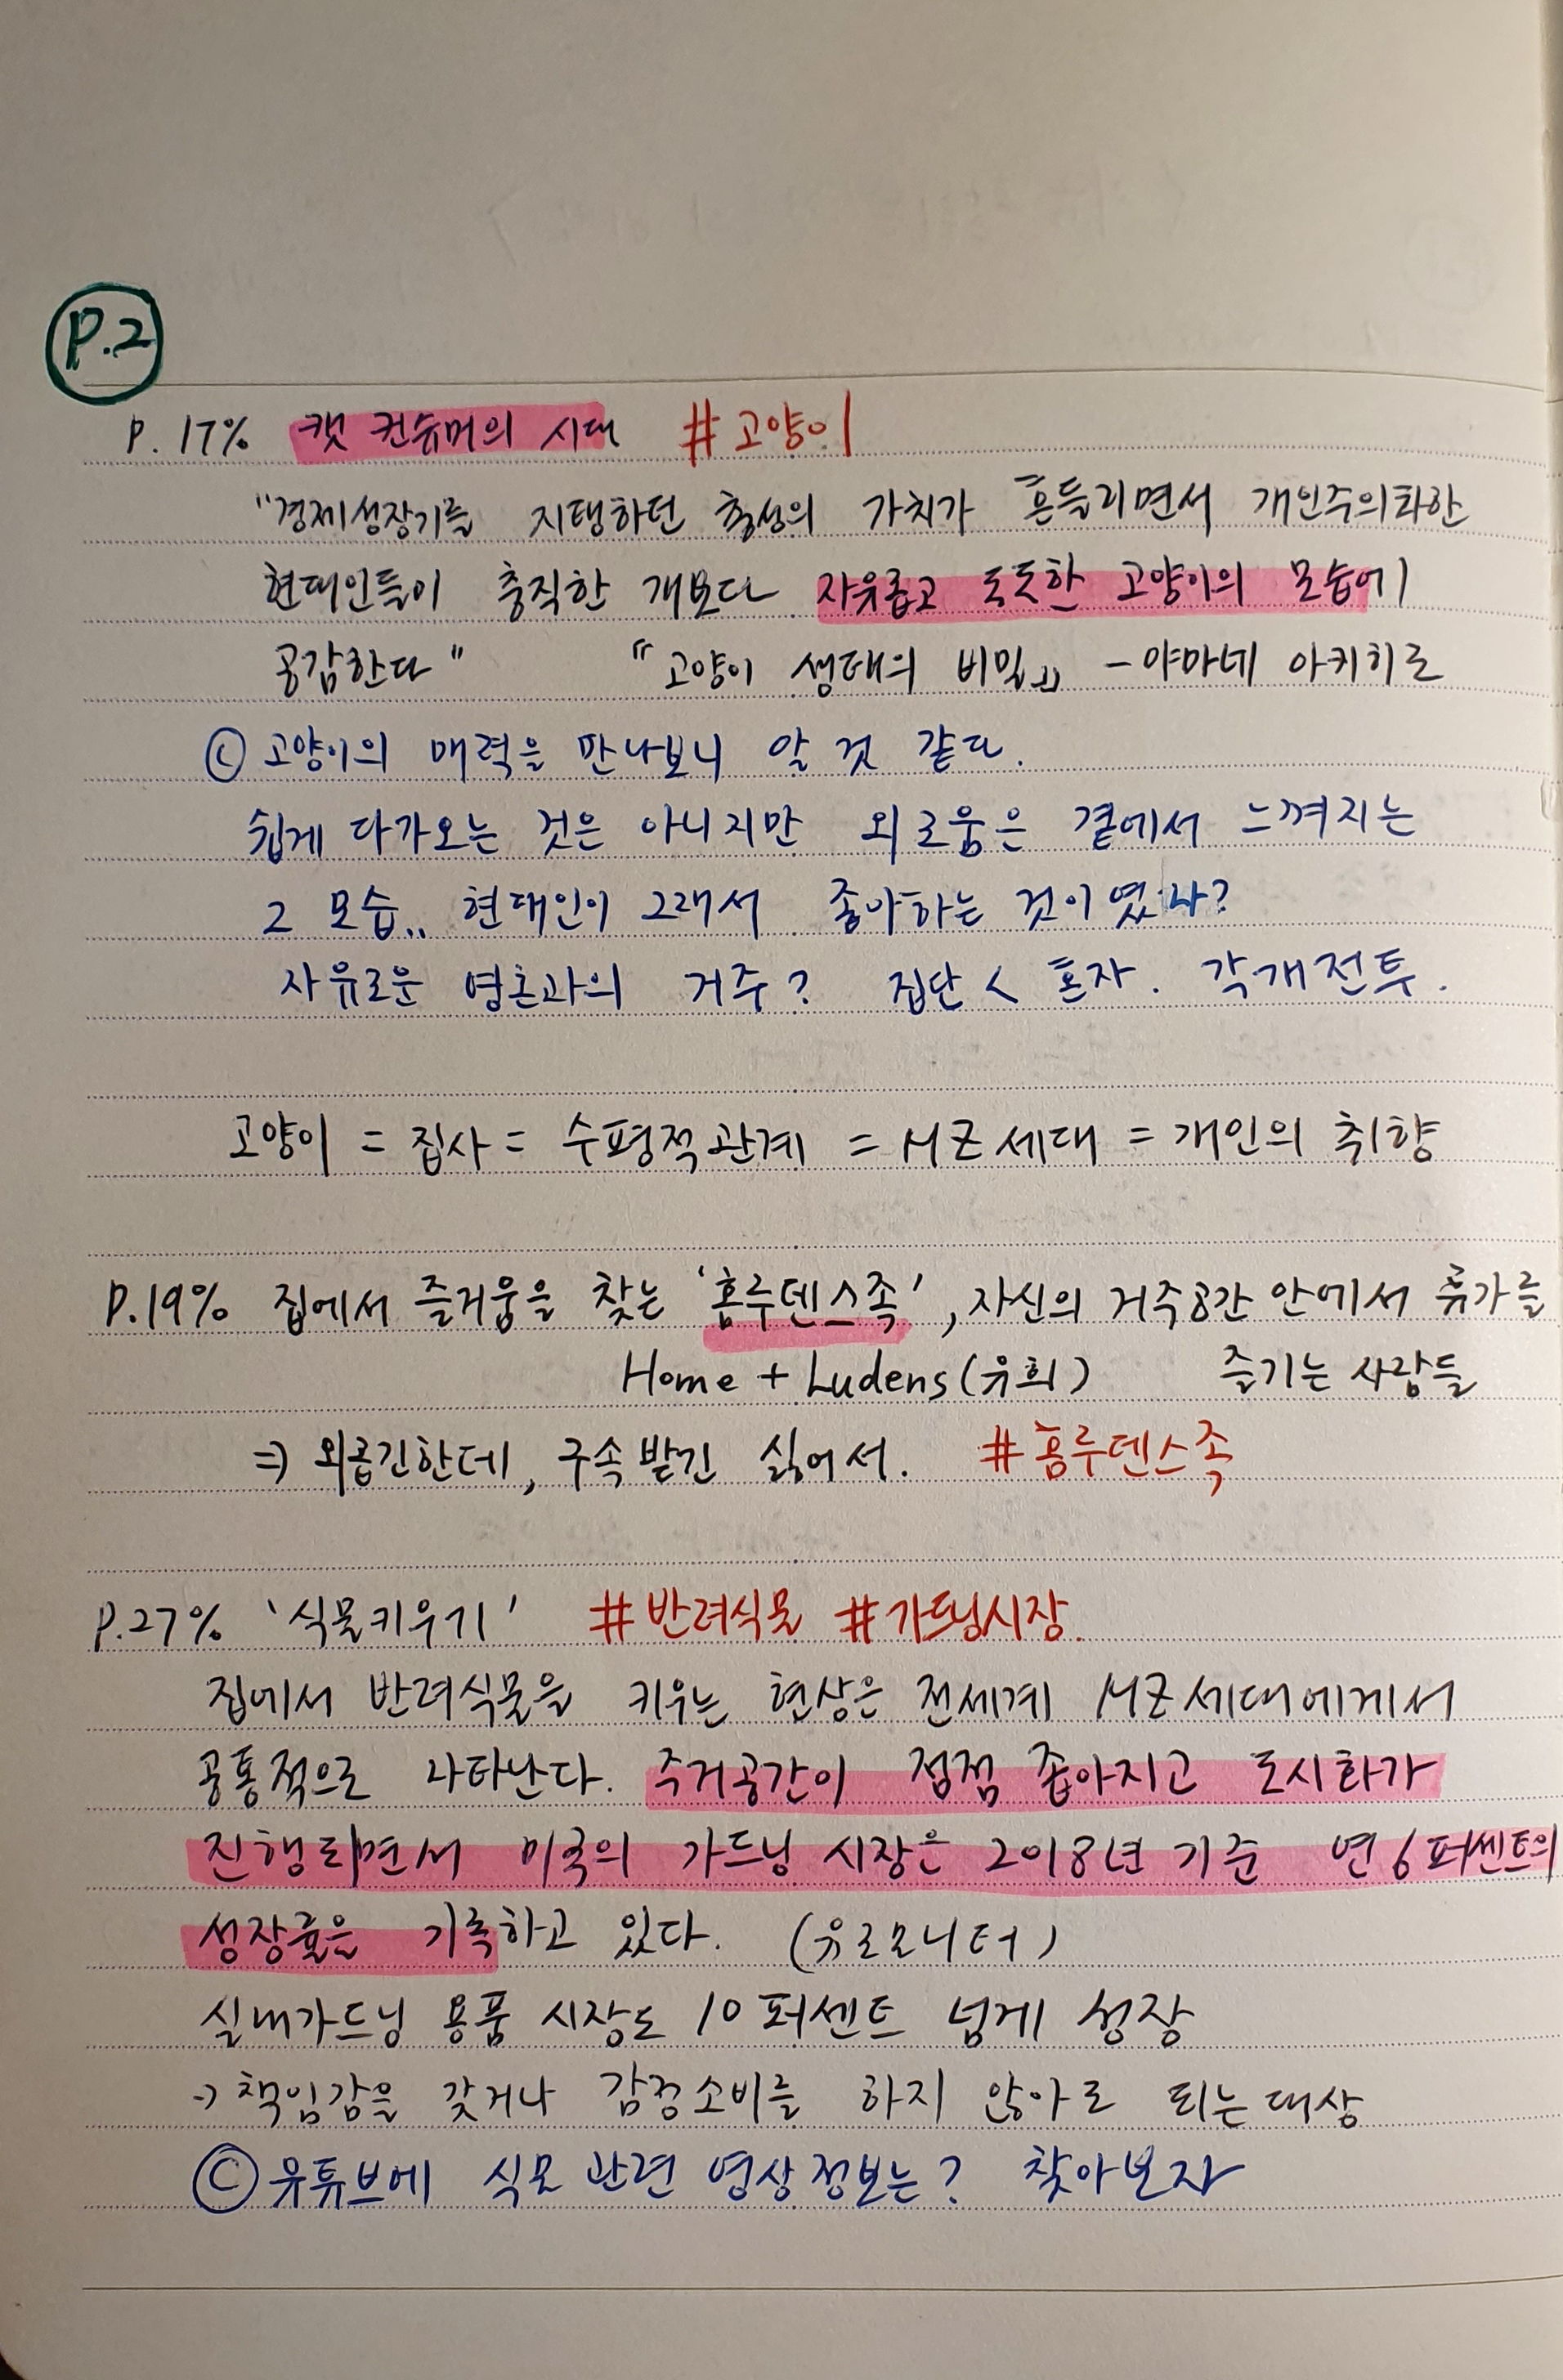 P.2
P. 17% 캣 컨슈머의 시대 #고양이
"경제성장기를 지탱하던 충성의 가치가 흔들리면서 개인주의화한
현대인들이 충직한 개보다 자유롭고 도도한 고양이의 모습에
공감한다" 『고양이 생태의 비밀』 - 야마네 아키히로
ⓒ 고양이의 매력을 만나보니 알 것 같다.
쉽게 다가오는 것은 아니지만 외로움은 곁에서 느껴지는
그 모습.. 현대인이 그래서 좋아하는 것이였나?
자유로운 영혼과의 거주? 집단 < 혼자. 각개전투.
고양이 = 집사 = 수평적관계 = MZ세대 = 개인의 취향
P.19% 집에서 즐거움을 찾는 '홈루덴스족', 자신의 거주공간 안에서 휴가를
Home + Ludens (유희) 즐기는 사람들
⇒ 외롭긴한데, 구속받긴 싫어서. #홈루덴스족
P.27% '식물키우기' #반려식물 #가드닝시장.
집에서 반려식물을 키우는 현상은 전세계 MZ세대에게서
공통적으로 나타난다. 주거공간이 점점 좁아지고 도시화가
진행되면서 미국의 가드닝 시장은 2018년 기준 연 6퍼센트의
성장률을 기록하고 있다. (유로모니터)
실내가드닝 용품 시장도 10퍼센트 넘게 성장
→ 책임감을 갖거나 감정소비를 하지 않아도 되는 대상
ⓒ 유튜브에 식모 관련 영상정보는? 찾아보자